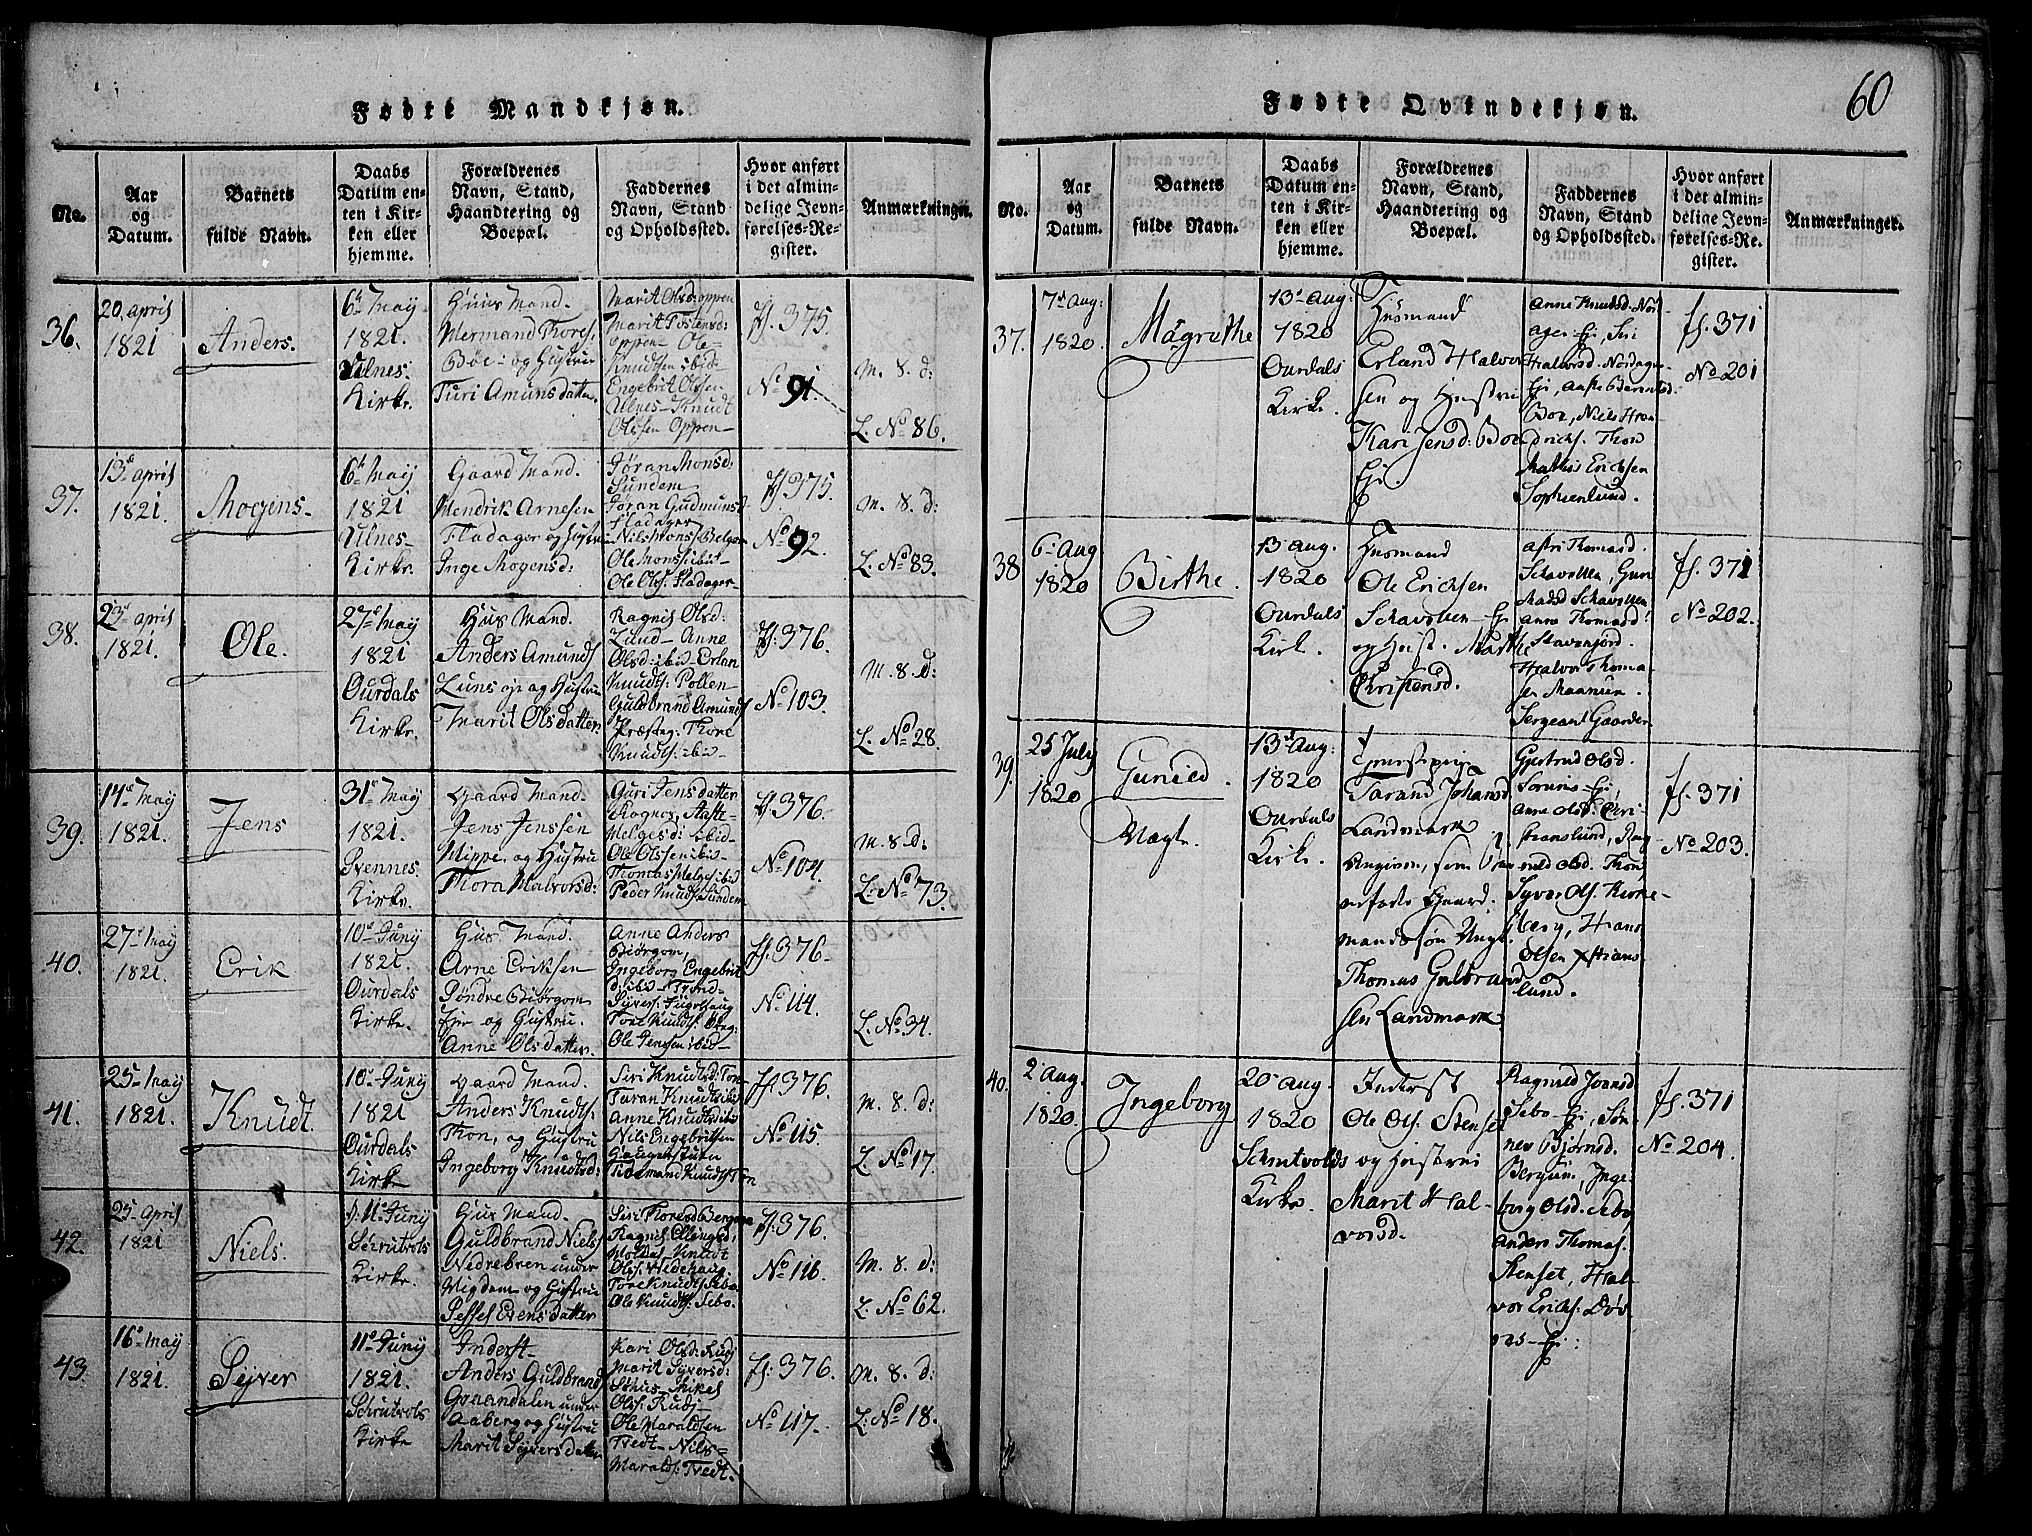 Fødte Mandkjøn.
No.
Aar
og
Datum.
Barnets
fulde Navn.
Daabs
Datum en-
ten i Kir-
ken eller
hjemme.
Forældrenes
Navn, Stand,
Haandtering og
Boepæl.
Faddernes
Navn, Stand
og Opholdssted.
Hvor anført
i det almin-
delige Jevn-
førelses-Re-
gister.
Anmærkninger.
36.
20. april
1821
Anders.
6te May
1821.
Ulnes
Kirke.
Huus Mand.
Bøe - og Hustru
Turi Amunsdatter.
Marit Olsd: oppen
Marit Tostensd:
oppen - Ole
Knudtsen ibid
Engebrit Olsen
Ulnes - Knudt
Olssen Oppen
fl. 375.
No 91.
M. 8. d:
L. No 86.
37.
13de april
1821.
Mogens
6te May
1821
Ulnes
Kirke.
Gaard Mand.
Hendrik Arnesen
Fladager og Hustru
Inge Mogensd:
Jøran Monsd:
Sundem
Jøran Gudmunsd
Fladager
Ole Monss: ibid
Ole Olss: Fladager
fl. 375.
No 92.
M. 8. d:
L. No 83.
38.
23de april
1821.
Ole.
27de May
1821
Ourdals
Kirke.
Hus Mand.
Anders Amunds
Luns eje og Hustru
Marit Olsdatter
Ragnis Olsd:
Lund - Anne
Olsd: ibid - Erlan
Knudts: Pollen
Guldbrand Amunds
Præsteg: Thore
Knudts: ibid
fl. 376
No 103.
M. 8. d:
L. No 28.
39.
14de May
1821.
Jens
31te May
1821.
Svennes
Kirke.
Gaard Mand.
Jens Jenssen
Wippe, og Hustru
Thora Halvorsd:
Guri Jensdatter
Rognes, Aaste
Helgesd: ibid
Ole Olssen ibid
Thomas Helges ibid
Peder Knuds: Sundem
fl. 376
No 104.
M. 8. d:
L: No 73.
40.
27de May
1821.
Erik
10de Juny
1821.
Ourdals
Kirke.
Hus Mand.
Arne Eriksen
Søndre Biørgom
Eje og Hustru.
Anne Olsdatter.
Anne Anders
Biørgom,
Ingeborg Engebrit
d: ibid - Trond
Syvers: Fugelhaug
Tore Knudts:
Ole Jenssen ibid
fl. 376
No 114.
L. No 34.
41.
25de May
1821.
Knudt.
10de Juny
1821
Ourdals
Kirke
Gaard Mand.
Anders Knudts:
Thon, og Hustru
Ingeborg Knudtsd:
Siri Knudtsd: Ton
Taran Knudts ibid
Anne Knudts ibid
Nils Engebritsen
Tidemand Knudts Ton
fl 376
No 115.
M. 8. d:
L. No 17.
42.
25de April
1821
Niels.
d. 11te Juny
Schrutvols
Kirke.
Hus Mand.
Guldbrand Niels
Nedrebren under
Migdem og Hustru
Sesfel Evensdatter
Siri Thoresd Bergene
Ragnis Ellingsd:
Knudt
Olss: Wedehaug
Tore Knudts: Sebo
Ole Knudts: Sebo.
fl. 376
No 116.
M. 8. d:
L. No 62.
43.
16de May
1821.
Sejver
11te Juny
1821.
Schrutvols
Kirke
Inderst
Anders Guldbrands
Grønandalen under
Aaberg og Hustru
Marit Syversdatter
Kari Olsd: Rudj
Marit Syversd:
Sthus - Mikel
Olss: Rudj
Ole Haraldsen
Tvedt - Nils
Haralds: Tvedt
fl. 376.
No 117.
M. 8. d:
L: No 18.
Fødte Qvindekjøn.
60
No.
Aar
og
Datum.
Barnets
fulde Navn.
Daabs
Datum en-
ten i Kir-
ken eller
hjemme.
Forældrenes
Navn, Stand,
Haandtering og
Boepæl.
Faddernes
Navn, Stand
og Opholdssted.
Hvor anført
i det almin-
delige Jevn-
førelses-Re-
gister.
Anmærkninger.
37.
7de Aug:
1820.
Magrethe
13de Aug:
1820
Ourdals
Kirke.
Husmand
Erland Halvor
sen og Hustrui
Kari Jensd: Boe
Eje.
Anne Knudsd: Nor
ager Eje, Siri
Halvorsd. Nordager
Eje, Aaste Berentsd.
Boe, Niels Hen
drichs. Thon
Mathis Erichsen
Sophienlund.
fl. 371
No 201
38
6te Aug
1820
Birthe.
13de Aug.
1820
Ourdals
Kirk.
Husmand
Ole Erichsen
Schavollen - Eje
og Hust. Marthe
Christensd.
Astri Thomasd.
Schavollen, Guri
Madsd Schavollen
Anne Thomasd:
Stavenjord
Halvor Thoma-
sen Maanun.
Sergeant Gaarder
fl. 371
No 202.
39.
25 July
1820
Gunild
Uægte.
13de Aug:
1820
Ourdals
Kirke.
Tarand Johansd
Landmark
Angiven, som
Gaard-
mandssøn Ungk.
Thomas Gulbrand
sen Landmark
Gjertrud Olsd.
Sorums - Eje,
Anne Olsd: Chri-
stianslund, Rag-
nild Olsd. Thon
Syver Ols. Kirke-
berg, Hans
Olsen Xstians
lund.
fl. 371
No 203.
40.
2 Aug.
1820.
Ingeborg
20de Aug.
1820
Schrutvolds
Kirke.
Inderst
Ole Ols. Stenset
og Hustrui
Marit Hal-
vorsd.
Ragnild Joensd
Sebo - Eje, Søn
nev Bjørnsd.
Bergum, Inge-
borg Olsd. Sebo,
Anders Thomas.
Stenset, Hal-
vor Erichs. Døv
res - Eje.
fl. 371
No 204.